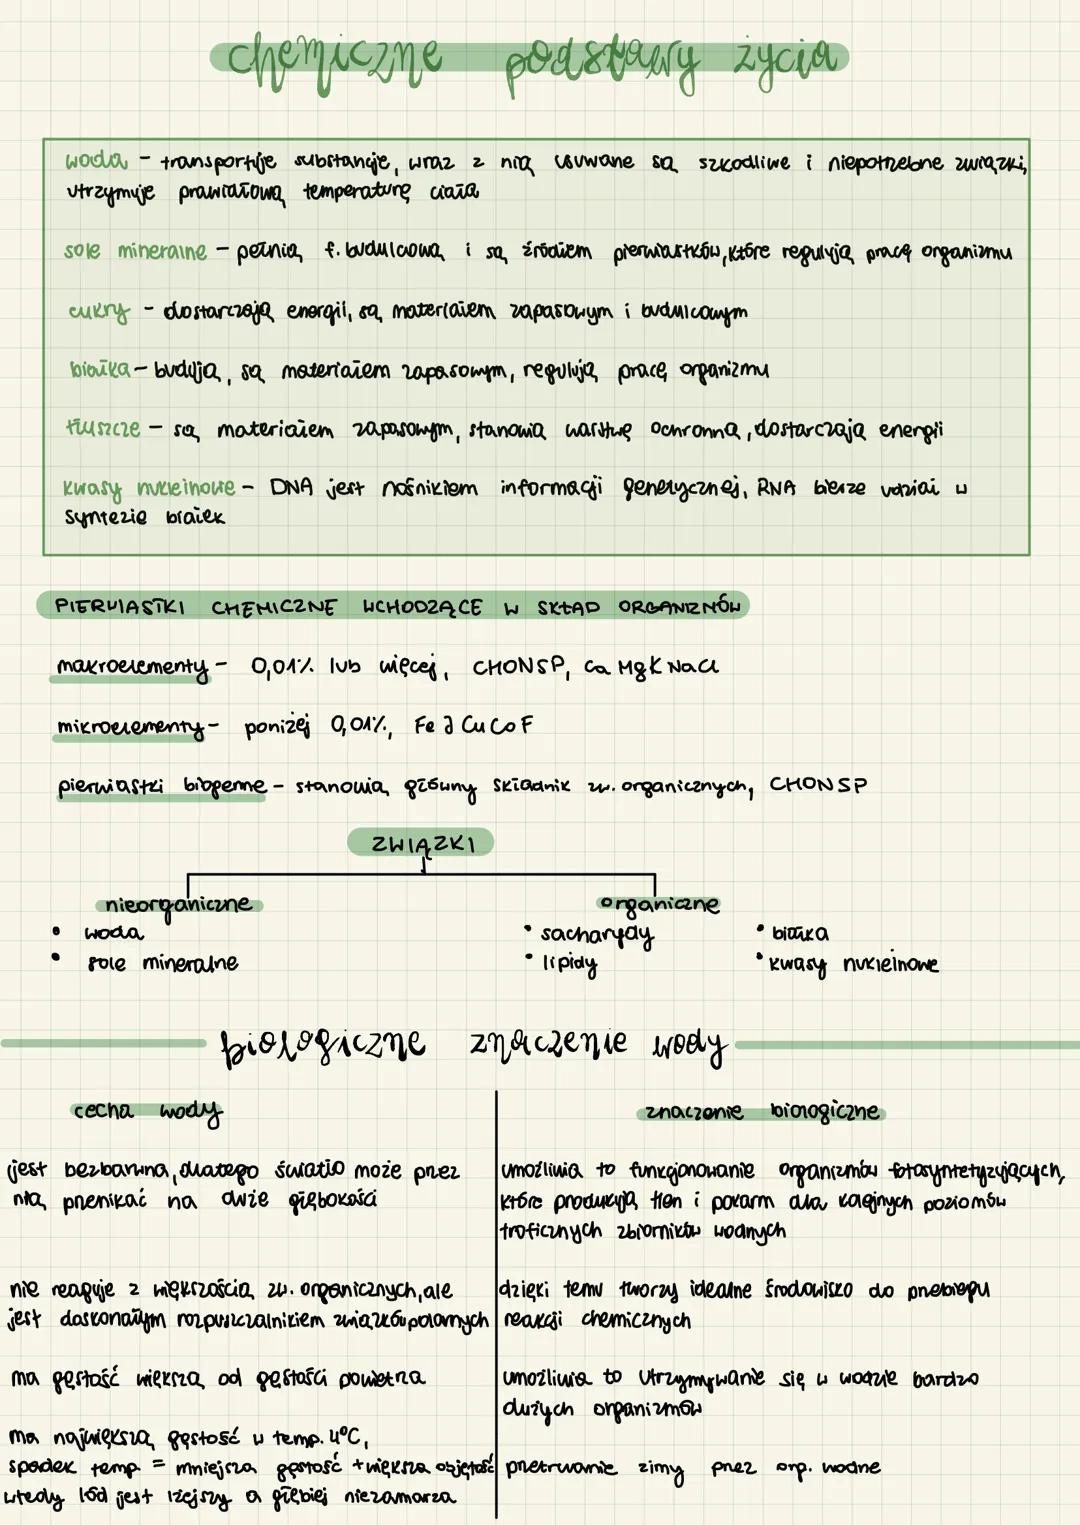 chemiczne podstawy życia
woda - transportuje substancje, wraz z nią usuwane są szkodliwe i niepotrzebne związki,
utrzymuje prawidłową temperaturę ciała
sole mineralne - pełnią f. budulcową i są źródłem pierwiastków, które regulują pracę organizmu
cukry - dostarczają energii, są materiałem zapasowym i budulcowym
białka - budują, są materiałem zapasowym, regulują pracę organizmu
tłuszcze - są materiałem zapasowym, stanowią warstwę ochronną, dostarczają energii
kwasy nukleinowe - DNA jest nośnikiem informacji genetycznej, RNA bierze udział w
syntezie białek
PIERWIASTKI CHEMICZNE WCHODZĄCE W SKŁAD ORGANIZMÓW
makroelementy - 0,01% lub więcej, CHONSP, Ca Mg K Na Cl
mikroelementy - poniżej 0,01%, Fe J Cu Co F
pierwiastki biogenne - stanowią główny składnik zw. organicznych, CHONSP
ZWIĄZKI
nieorganiczne organiczne
• woda • sacharydy • białka
• sole mineralne • lipidy • kwasy nukleinowe
biologiczne znaczenie wody
cecha wody znaczenie biologiczne
jest bezbarwna, dlatego światło może przez
nią przenikać na duże głębokości
umożliwia to funkcjonowanie organizmów fotosyntetyzujących,
które produkują tlen i pokarm dla kolejnych poziomów
troficznych zbiorników wodnych
nie reaguje z większością zw. organicznych, ale
jest doskonałym rozpuszczalnikiem związków polarnych
dzięki temu tworzy idealne środowisko do przebiegu
reakcji chemicznych
ma gęstość większą od gęstości powietrza
umożliwia to utrzymywanie się w wodzie bardzo
dużych organizmów
ma największą gęstość w temp. 4°C,
spadek temp = mniejsza gęstość + większa objętość
wtedy lód jest lżejszy a głębiej niezamarza
przetrwanie zimy przez org. wodne